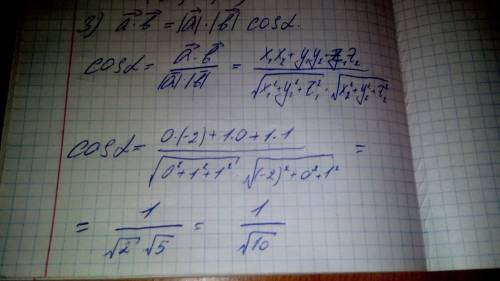 3) a⃗·b⃗ = |a⃗|·|b⃗| cosα.
cosα = a⃗·b⃗ / |a⃗|·|b⃗| = x₁x₂+y₁y₂+z₁z₂ / √x₁²+y₁²+z₁² · √x₂²+y₂²+z₂²
cosα = 0·(-2)+1·0+1·1 / √0²+1²+1² √(-2)²+0²+1² =
= 1 / √2 √5 = 1 / √10